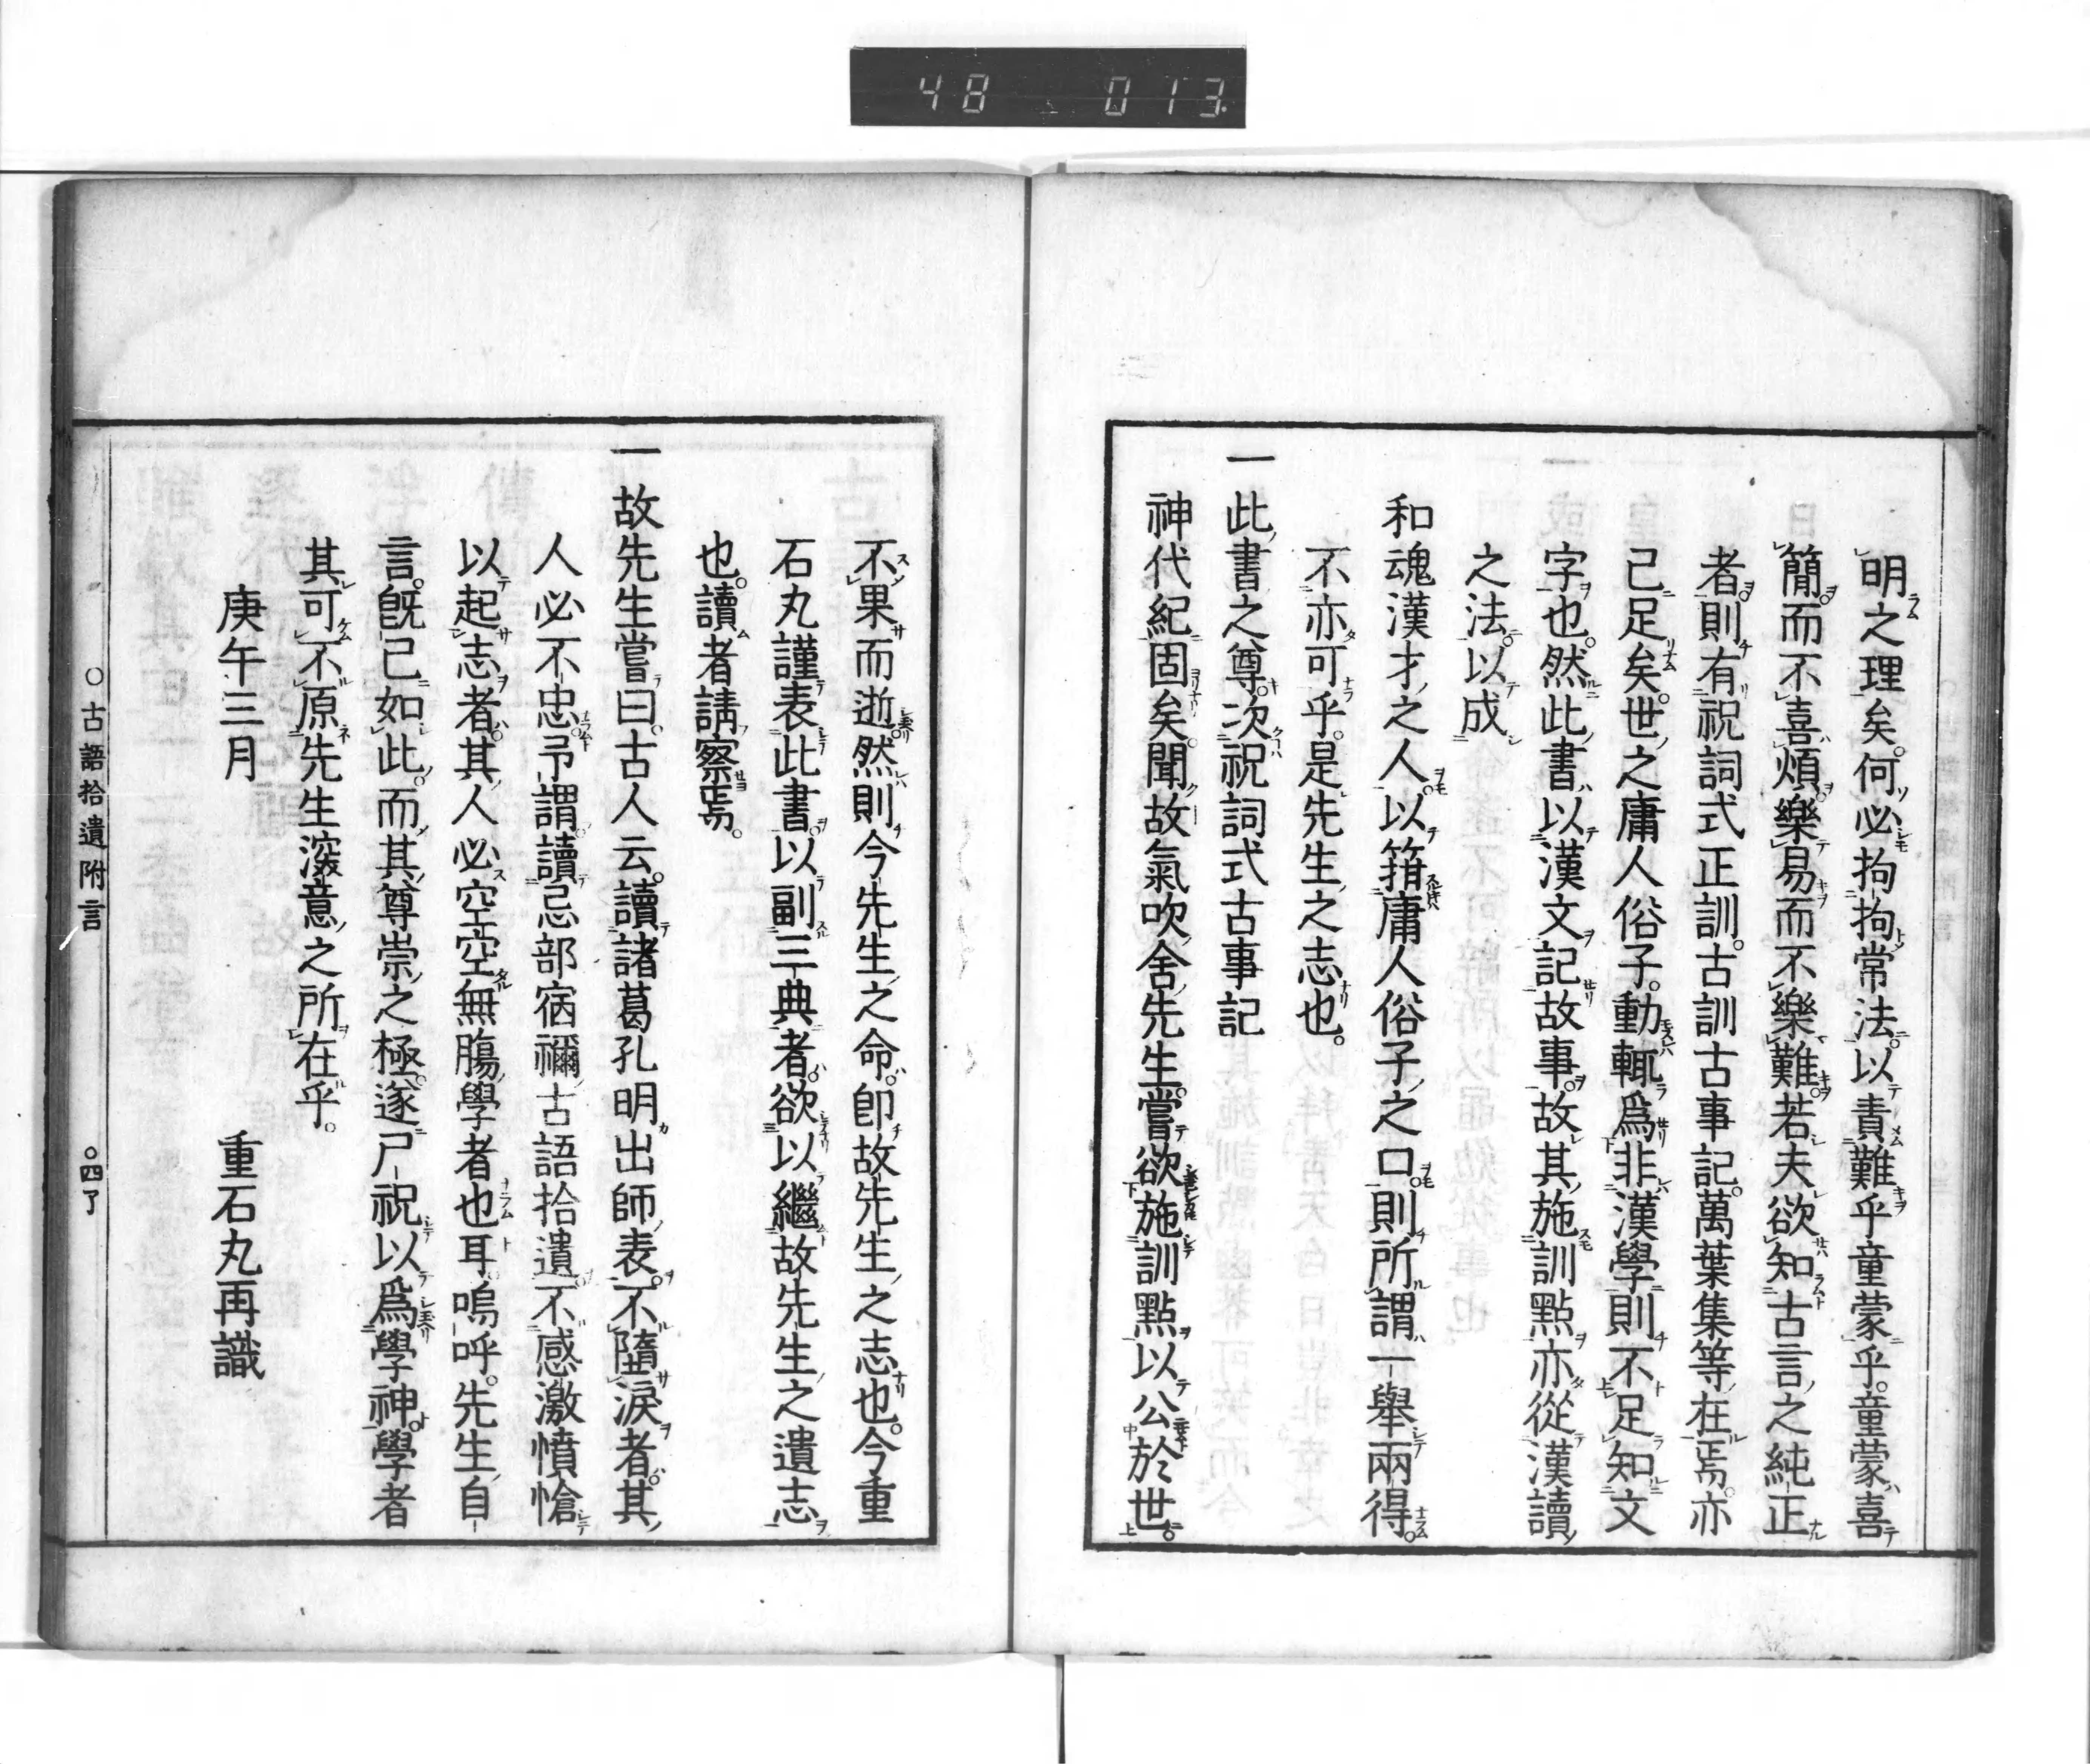 48 013
明之理矣。何必拘拘常法。以責難乎童蒙乎。童蒙喜
簡而不喜煩。樂易而不樂難。若夫欲知古言之純正
者。則有祝詞式正訓。古訓古事記。萬葉集等在焉。亦
已足矣。世之庸人俗子。動輒爲非漢學則不足知文
字也。然此書以漢文記故事。故其施訓點亦從漢讀
之法。以成
和魂漢才之人。以箝庸人俗子之口。則所謂一舉兩得。
不亦可乎。是先生之志也。
一此書之尊。次祝詞式古事記
神代紀固矣。聞故氣吹舍先生。嘗欲施訓點以公於世。
不果而逝。然則今先生之命。卽故先生之志也。今重
石丸謹表此書。以副三典者。欲以繼故先生之遺志
也。讀者請察焉。
一故先生嘗曰。古人云。讀諸葛孔明出師表。不墮淚者。其
人必不忠。予謂讀忌部宿禰古語拾遺。不感激憤愴
以起志者。其人必空空無膓學者也耳。嗚呼。先生自
言。旣已如此。而其尊崇之極。遂尸祝以爲學神。學者
其可不原先生深意之所在乎。
庚午三月 重石丸再識
○古語拾遺附言 ○四了